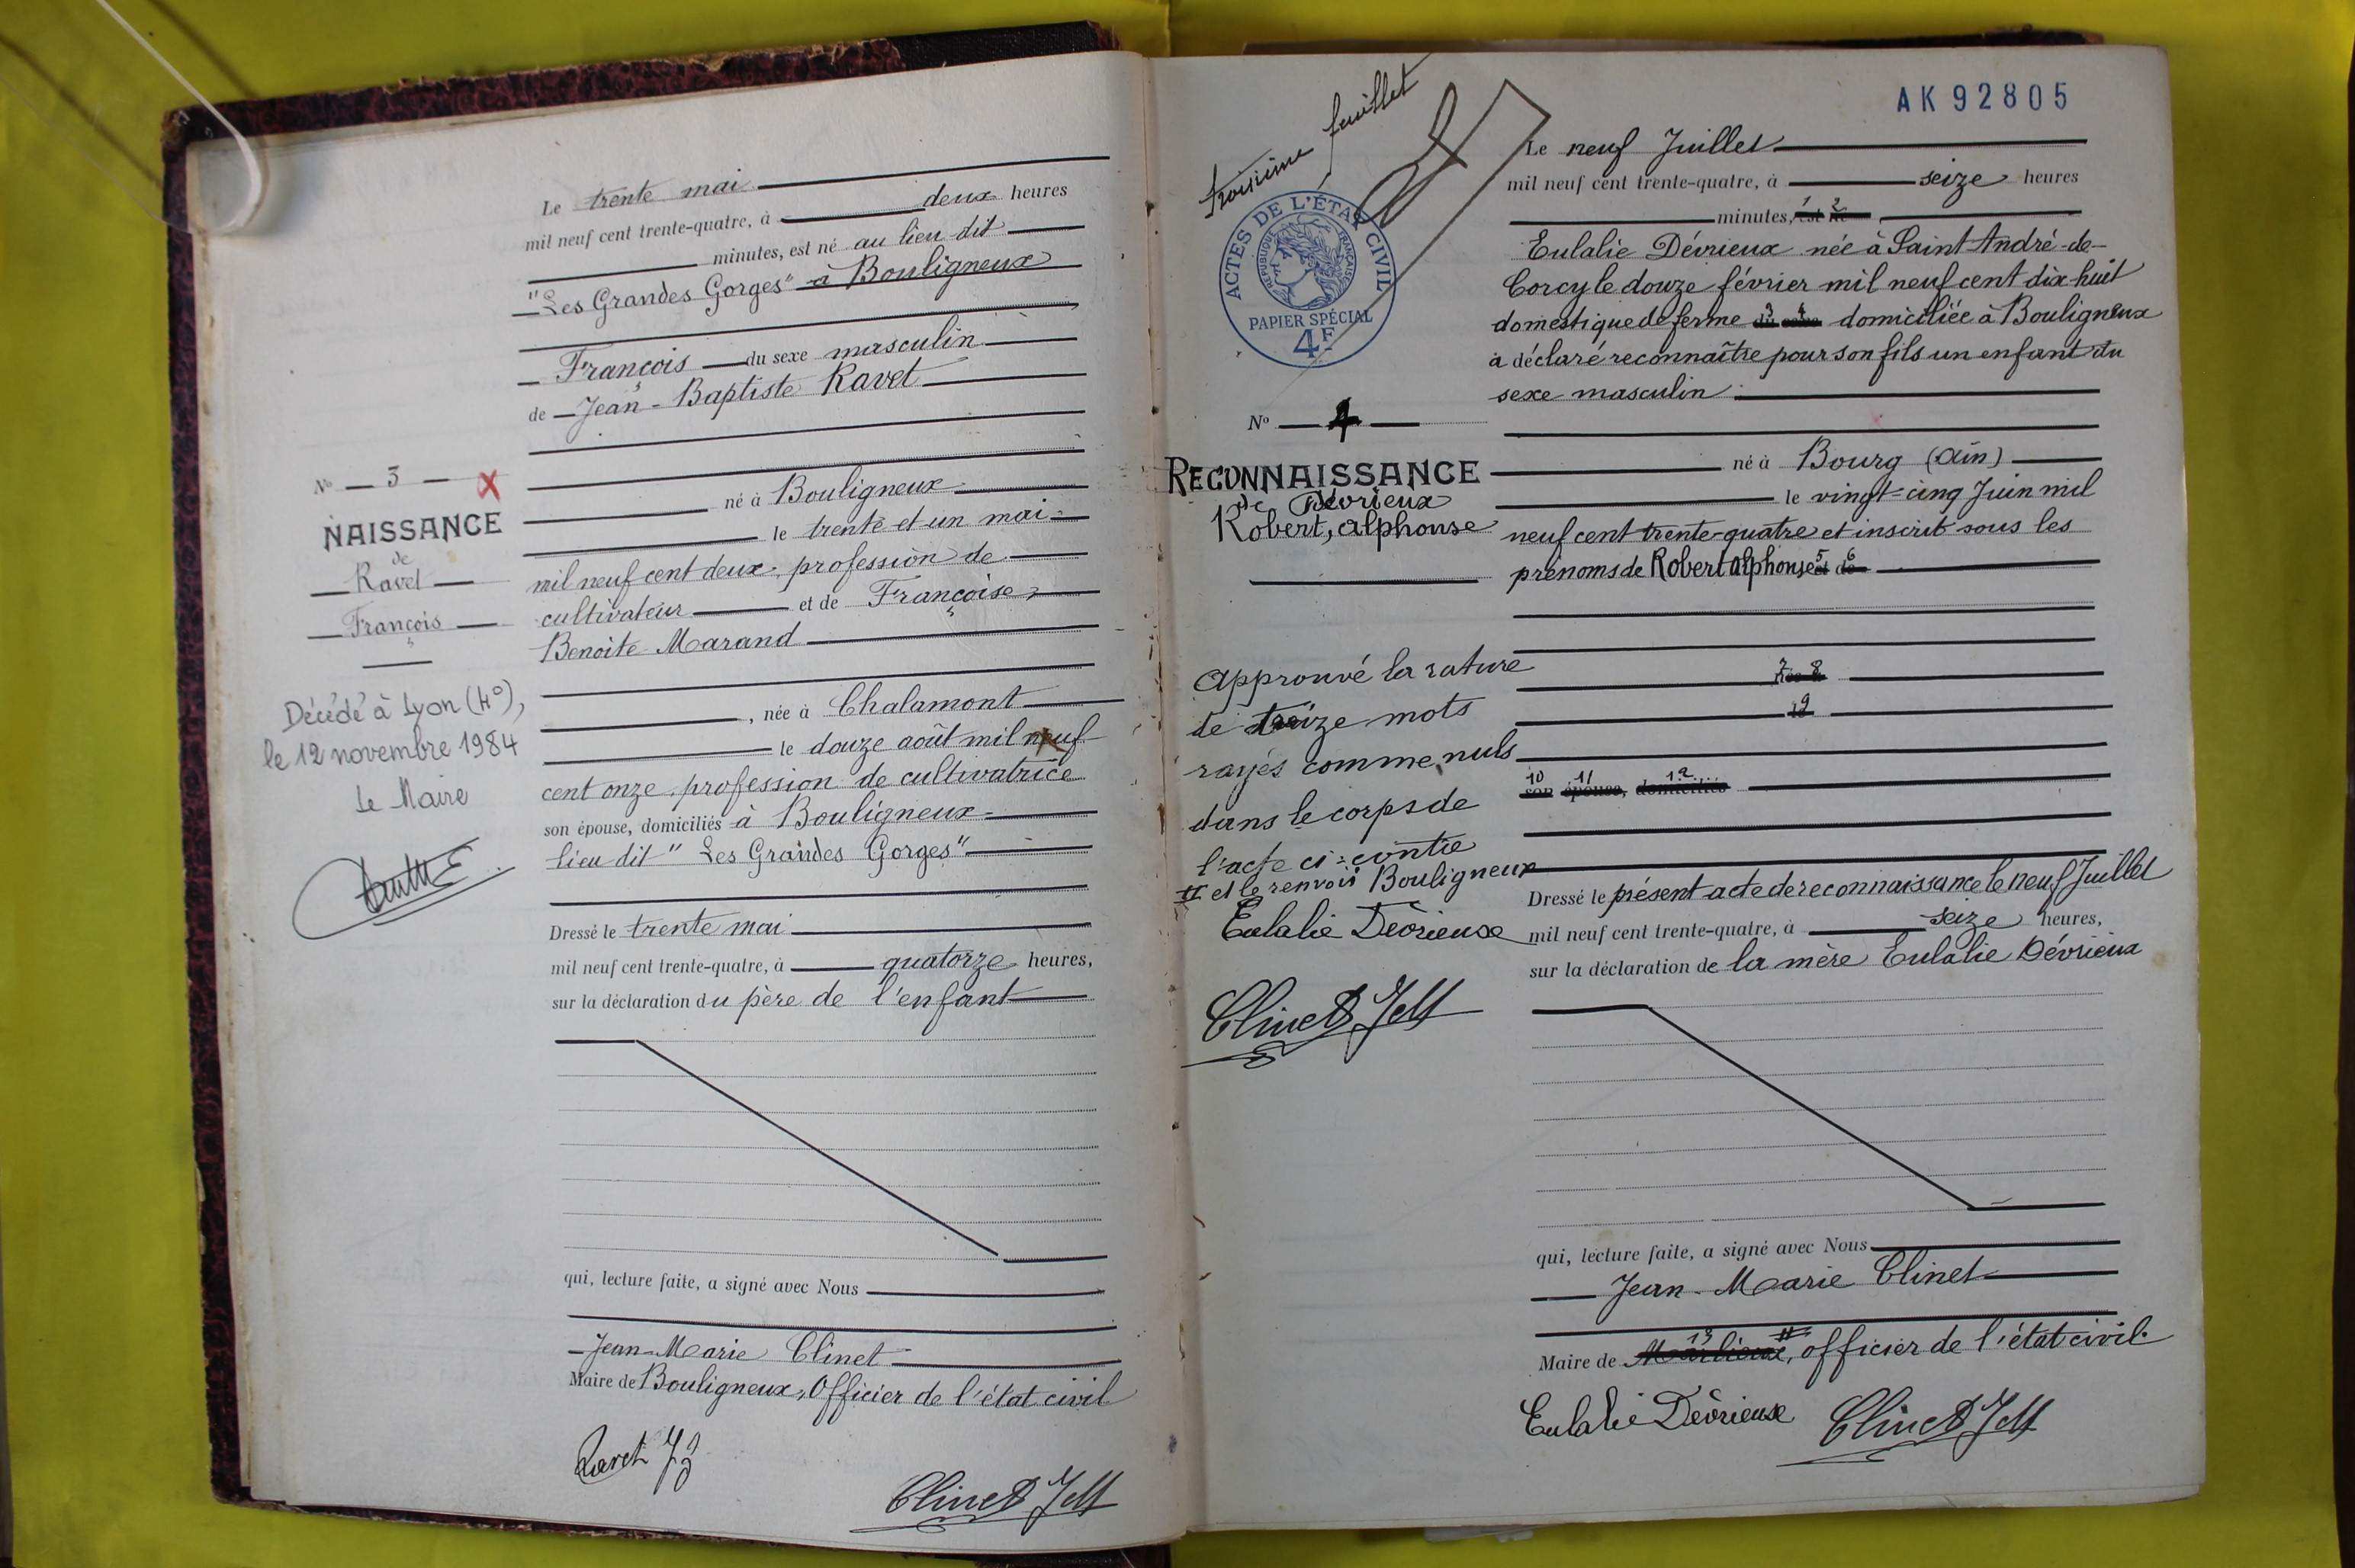 Le trente mai
mil neuf cent trente-quatre, à deux heures
minutes, est né au lieu dit
"Les Grandes Gorges" à Bouligneux
François du sexe masculin
de Jean-Baptiste Ravet
N° 3 X
NAISSANCE
de
Ravet
François
Décédé à Lyon (4°),
le 12 novembre 1984
Le Maire
né à Bouligneux
le trente et un mai
mil neuf cent deux, profession de
cultivateur et de Françoise,
Benoite Marand
, née à Chalamont
le douze août mil neuf
cent onze, profession de cultivatrice
son épouse, domiciliés à Bouligneux
lieu dit "Les Grandes Gorges"
Dressé le trente mai
mil neuf cent trente-quatre, à quatorze heures,
sur la déclaration du père de l'enfant
qui, lecture faite, a signé avec Nous
Jean-Marie Clinet
Maire de Bouligneux, Officier de l'état civil
Ravet
Clinet
AK 92805
Troisième feuillet
ACTES DE L'ÉTAT CIVIL
RÉPUBLIQUE FRANÇAISE
PAPIER SPÉCIAL
4F
N° 4
RECONNAISSANCE
de Dévrieux
Robert, Alphonse
Approuvé la rature
de treize mots
rayés comme nuls
dans le corps de
l'acte ci-contre
# et le renvoi Bouligneux
Eulalie Dèvrieuse
Clinet
Le neuf Juillet
mil neuf cent trente-quatre, à seize heures
minutes, 1 est 2 né
Eulalie Dévrieux née à Saint-André-de-
Corcy le douze février mil neuf cent dix-huit
domestique de ferme 3 du 4 sexe domiciliée à Bouligneux
a déclaré reconnaître pour son fils un enfant du
sexe masculin
né à Bourg (Ain)
le vingt-cinq Juin mil
neuf cent trente-quatre et inscrit sous les
prénoms de Robert Alphonse 5 et 6 de
7 née 8 à
9 le
10 son 11 épouse, 12 domiciliés
Dressé le présent acte de reconnaissance le neuf Juillet
mil neuf cent trente-quatre, à seize heures,
sur la déclaration de la mère Eulalie Dévrieux
qui, lecture faite, a signé avec Nous
Jean-Marie Clinet
Maire de 13 Marlieux, # officier de l'état civil.
Eulalie Dèvrieuse Clinet